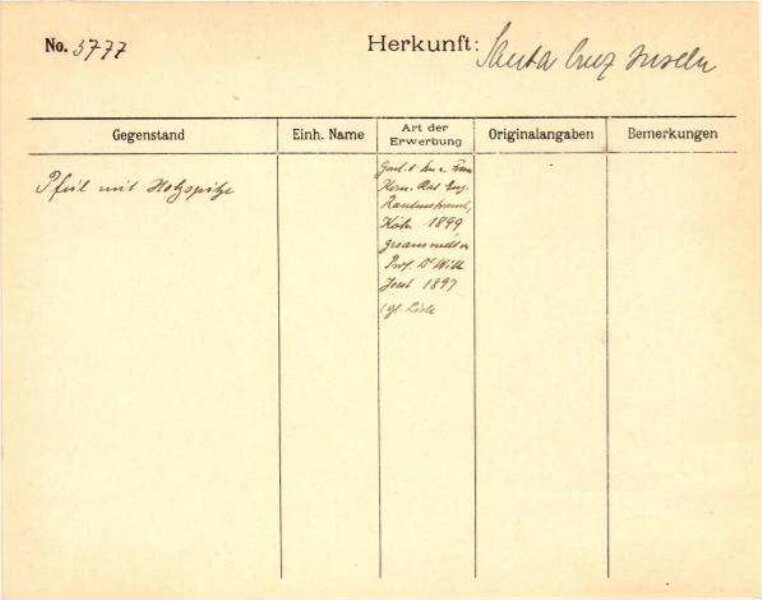 No. 3777
Herkunft: Santa Cruz Inseln
Gegenstand
Einh. Name
Art der
Erwerbung
Originalangaben
Bemerkungen
Pfeil mit Holzspitze
Frau
Rat Eug.
Rautenstrauch,
Köln 1899
gesammelt v.
Prof. Dr Wilh
Joest 1897